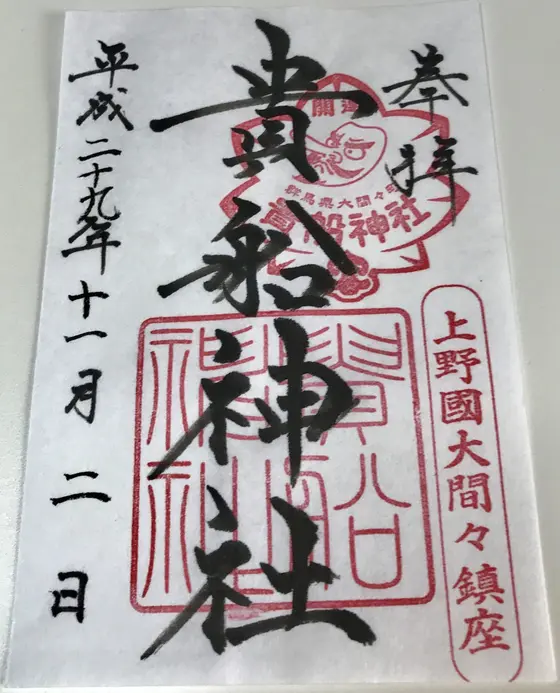 奉拝
開運
群馬県大間々町
貴船神社
上野國大間々鎮座
貴船神社
貴船神社
平成二十九年十一月二日